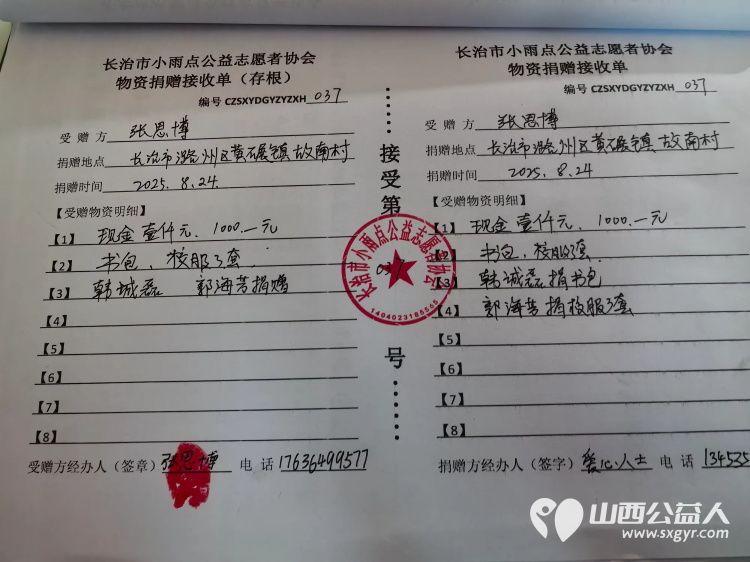 长治市小雨点公益志愿者协会
物资捐赠接收单（存根）
编号 CZSXYDGYZYZXH 037
受赠方 张思博
捐赠地点 长治市潞州区黄碾镇故南村
捐赠时间 2025.8.24
【受赠物资明细】
【1】 现金壹仟元. 1000.—元
【2】 书包、校服3套
【3】 韩城磊 郭海芳捐赠
【4】
【5】
【6】
【7】
【8】
受赠方经办人（签章） 张思博 电话 17636499577
接受第
037
号
长治市小雨点公益志愿者协会
1404023185565
长治市小雨点公益志愿者协会
物资捐赠接收单
编号 CZSXYDGYZYZXH 037
受赠方 张思博
捐赠地点 长治市潞州区黄碾镇故南村
捐赠时间 2025.8.24
【受赠物资明细】
【1】 现金壹仟元. 1000.—元
【2】 书包、校服3套
【3】 韩城磊捐书包
【4】 郭海芳捐校服3套
【5】
【6】
【7】
【8】
捐赠方经办人（签字） 爱心人士 电话 134535
山西公益人
www.sxgyr.com